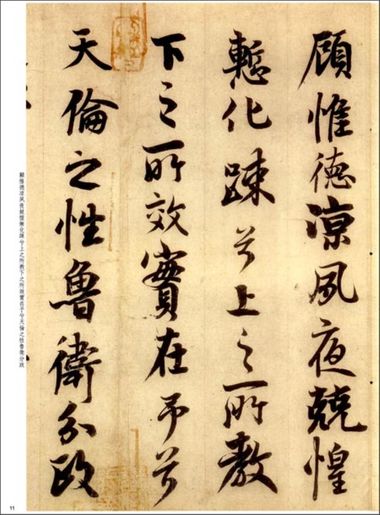 顧惟德涼夙夜兢惶
慙化踈兮上之所教
下之所效實在予兮
天倫之性魯衛分政
顧惟德涼夙夜兢惶慙化踈兮上之所教下之所效實在予兮天倫之性魯衛分政
11